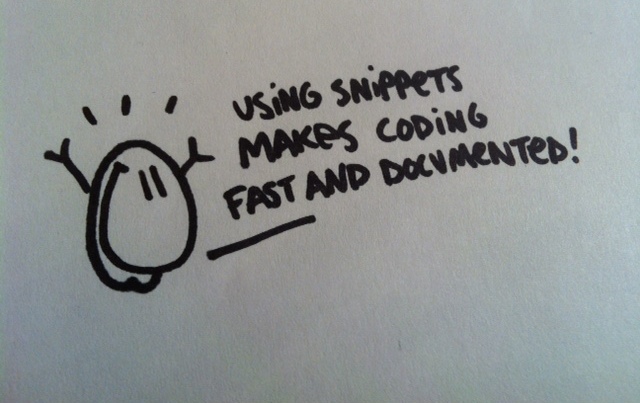 USING SNIPPETS
MAKES CODING
FAST AND DOCUMENTED!